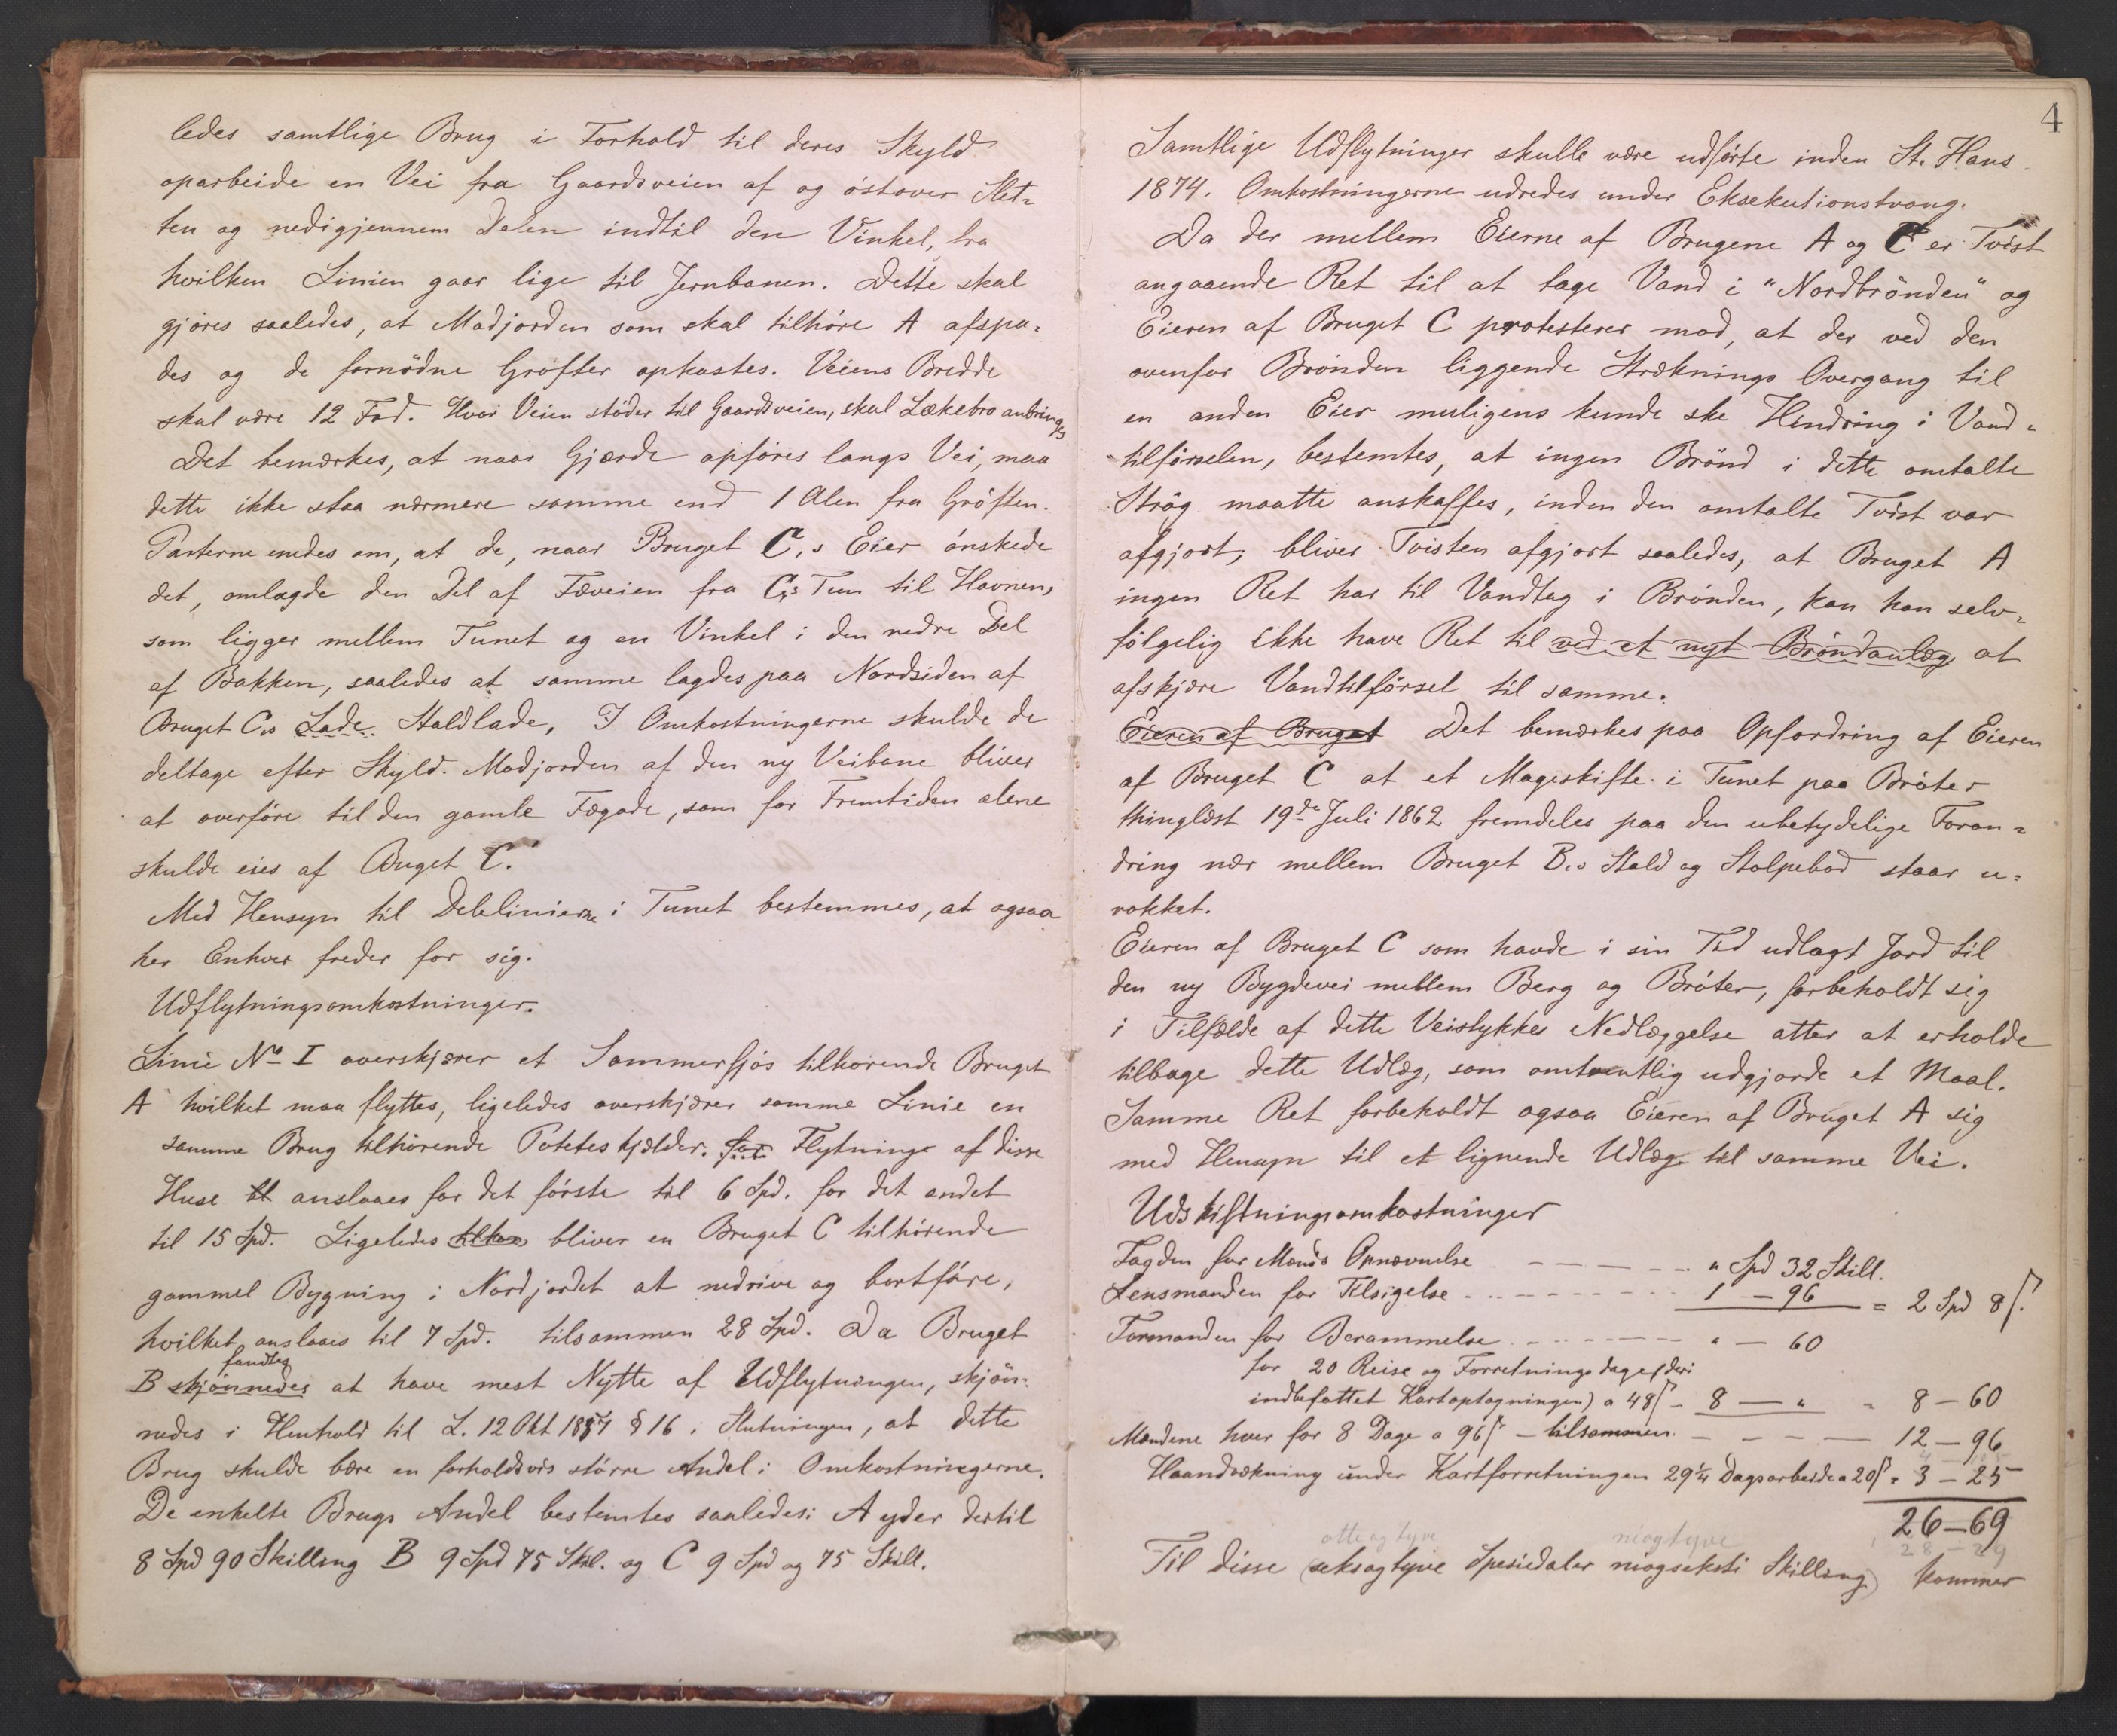 ledes samtlige Brug i Forhold til deres Skyld
oparbeide en Vei fra Gaardsveien af og östover Slet-
ten og nedigjennem Dalen indtil den Vinkel, fra
hvilken Linien gaar lige til Jernbanen. Dette skal
gjöres saaledes, at Madjorden som skal tilhöre A afspa-
des og de fornödne Gröfter opkastes. Veiens Bredde
skal være 12 Fod. Hvor Veien stöder til Gaardsveien, skal Lækebro anbringes
Det bemærkes, at naar Gjærde opföres langs Vei, maa
dette ikke staa nærmere samme end 1 Alen fra Gröften.
Parterne enedes om, at de, naar Bruget C,s Eier önskede
det, omlagde den Del af Fæveien fra C,s Tun til Havnen,
som ligger mellem Tunet og en Vinkel i den nedre Del
af Bakken, saaledes at samme lagdes paa Nordsiden af
Bruget C,s Lade Staldlade, I Omkostningerne skulde de
deltage efter Skyld. Madjorden af den ny Veibane bliver
at overföre til den gamle Fægade, som for Fremtiden alene
skulde eies af Buget C.
Med Hensyn til Delelinierne i Tunet bestemmes, at ogsaa
her Enhver freder for sig.
Udflytningsomkostninger.
Linie No I overskjærer et Sommerfjös tilhörende Bruget
A hvilket maa flyttes, ligeledes overskjærer samme Linie en
samme Brug tilhörende Poteteskjelder. for Flytninge af disse
Huse bl anslaaes for det förste til 6 Spd. for det andet
til 15 Spd. Ligeledes tilhör bliver en Bruget C tilhörende
gammel Bygning i Nordjordet at nedrive og bortföre,
hvilket anslaaes til 7 Spd. tilsammen 28 Spd. Da Bruget
fandtes
B skjönnedes at have mest Nytte af Udflytningen, skjön-
nedes i Henhold til L. 12 Okt 1857 § 16 i Slutningen, at dette
Brug skulde bære en forholdsvis större Andel i Omkostningerne.
De enkelte Brugs Andel bestemtes saaledes: A yder dertil
8 Spd 90 Skilling B 9 Spd 75 Skil. og C 9 Spd og 75 Skill.
4
Samtlige Udflytninger skulle være udförte inden St. Hans
1874. Omkostningerne udredes under Eksekutionstvang.
Da der mellem Eierne af Brugene A og C er Tvist
angaaende Ret til at tage Vand i "Nordbrönden" og
Eieren af Bruget C protesterer mod, at der ved den
ovenfor Brönden liggende Stræknings Overgang til
en anden Eier muligens kunde ske Hindring i Vand-
tilförselen, bestemtes, at ingen Brönd i dette omtalte
Strög maatte anskaffes, inden den omtalte Tvist var
afgjort; bliver Tvisten afgjort saaledes, at Bruget A
ingen Ret har til Vandtag i Brönden, kan han selv-
fölgelig ikke have Ret til ved et nyt Bröndanlæg at
afskjære Vandtilförsel til samme.
Eieren af Bruget Det bemærkes paa Opfordring af Eieren
af Bruget C at et Mageskifte i Tunet paa Bröter
thinglæst 19de Juli 1862 fremdeles paa den ubetydelige Foran-
dring nær mellem Bruget B,s Stald og Stolpebod staar u-
rokket.
Eieren af Bruget C som havde i sin Tid udlagt Jord til
den ny Bygdevei mellem Berg og Bröter, forbeholdt sig
i Tilfælde af dette Veistykkes Nedlæggelse atter at erholde
tilbage dette Udlæg, som omtrentlig udgjorde et Maal.
Samme Ret forbeholdt ogsaa Eieren af Bruget A sig
med Hensyn til et lignende Udlæg til samme Vei.
Udskiftningsomkostninger
Fogden for Mænds Opnævnelse - - - - - " Spd 32 Skill.
Lensmanden for Tilsigelse - - - - - - 1 - 96 = 2 Spd 8 ſ.
Formanden for Berammelse - - - - - - " - 60
for 20 Reise og Forretningsdage (deri
indbefattet Kartoptagningen) a 48 ſ - 8 - " = 8 - 60
Mændene hver for 8 Dage a 96 ſ - tilsammen - - - - 12 - 96
Haandrækning under Kartforretningen 29 1/4 Dagsarbeide a 20 ſ = 3 - 25
26 - 69
otte og tyve niogtyve 28 - 29
Til disse (seksogtyve Spesiedaler niogseksti Skilling) kommer